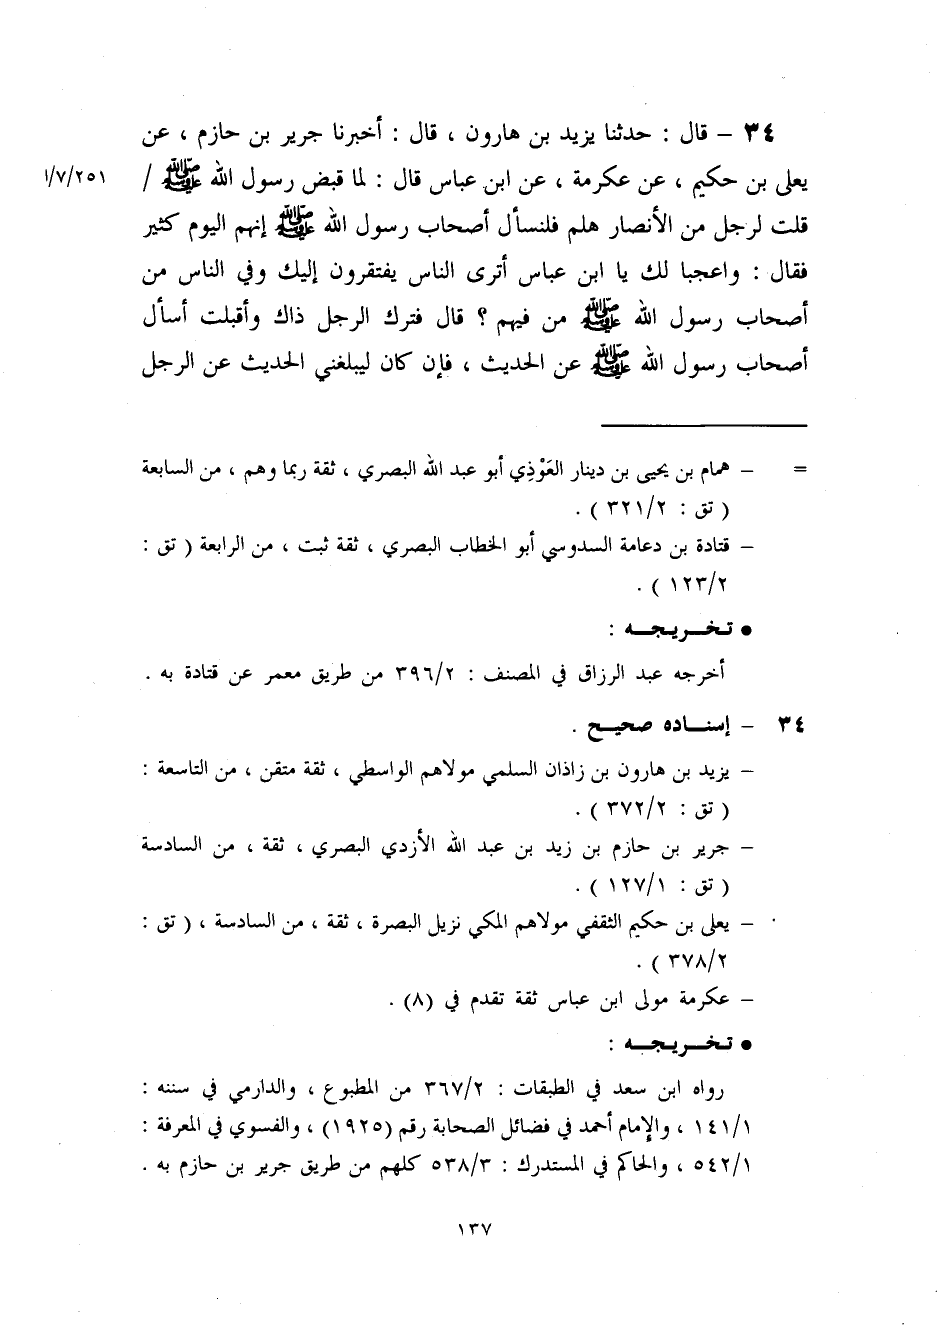 ٣٤ – قال : حدثنا يزيد بن هارون ، قال : أخبرنا جرير بن حازم ، عن
يعلى بن حكيم ، عن عكرمة ، عن ابن عباس قال : لما قبض رسول الله ﷺ / ١/٧/٢٥١
قلت لرجل من الأنصار هلم فلنسأل أصحاب رسول الله ﷺ إنهم اليوم كثير
فقال : واعجبا لك يا ابن عباس أترى الناس يفتقرون إليك وفي الناس من
أصحاب رسول الله ﷺ من فيهم ؟ قال فترك الرجل ذاك وأقبلت أسأل
أصحاب رسول الله ﷺ عن الحديث ، فإن كان ليبلغني الحديث عن الرجل
= – همام بن يحيى بن دينار العَوْذِي أبو عبد الله البصري ، ثقة ربما وهم ، من السابعة
( تق : ٣٢١/٢ ) .
– قتادة بن دعامة السدوسي أبو الخطاب البصري ، ثقة ثبت ، من الرابعة ( تق :
١٢٣/٢ ) .
● تـخـــريـجـــه :
أخرجه عبد الرزاق في المصنف : ٣٩٦/٢ من طريق معمر عن قتادة به .
٣٤ – إسنـــاده صحيـــح .
– يزيد بن هارون بن زاذان السلمي مولاهم الواسطي ، ثقة متقن ، من التاسعة :
( تق : ٣٧٢/٢ ) .
– جرير بن حازم بن زيد بن عبد الله الأزدي البصري ، ثقة ، من السادسة
( تق : ١٢٧/١ ) .
– يعلى بن حكيم الثقفي مولاهم المكي نزيل البصرة ، ثقة ، من السادسة ، ( تق :
٣٧٨/٢ ) .
– عكرمة مولى ابن عباس ثقة تقدم في (٨) .
● تـخـــريـجـــه :
رواه ابن سعد في الطبقات : ٣٦٧/٢ من المطبوع ، والدارمي في سننه :
١٤١/١ ، والإمام أحمد في فضائل الصحابة رقم (١٩٢٥) ، والفسوي في المعرفة :
٥٤٢/١ ، والحاكم في المستدرك : ٥٣٨/٣ كلهم من طريق جرير بن حازم به .
١٣٧